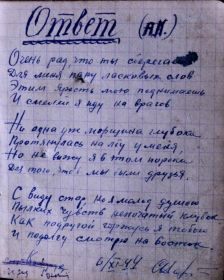 Ответ (А.К.)
Очень рад что ты сберегла
Для меня пару ласковых слов
Этим ярость мою поднимаешь
И смелей я иду на врагов.
Ни одна уж морщина глубока
Протянулась на лбу у меня,
Но не вижу я в том порока
Для того, чтоб мы были друзья.
С виду стар, но я молод душою
Пылких чувств непочатый клубок
Как подругой горжусь я тобою
И подолгу смотрю на восток
6/XI-44